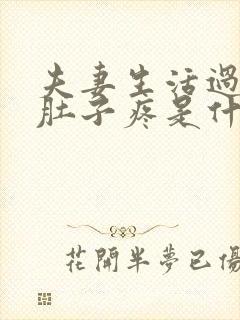 夫妻生活過
肚子疼是什
花開半夢已傷